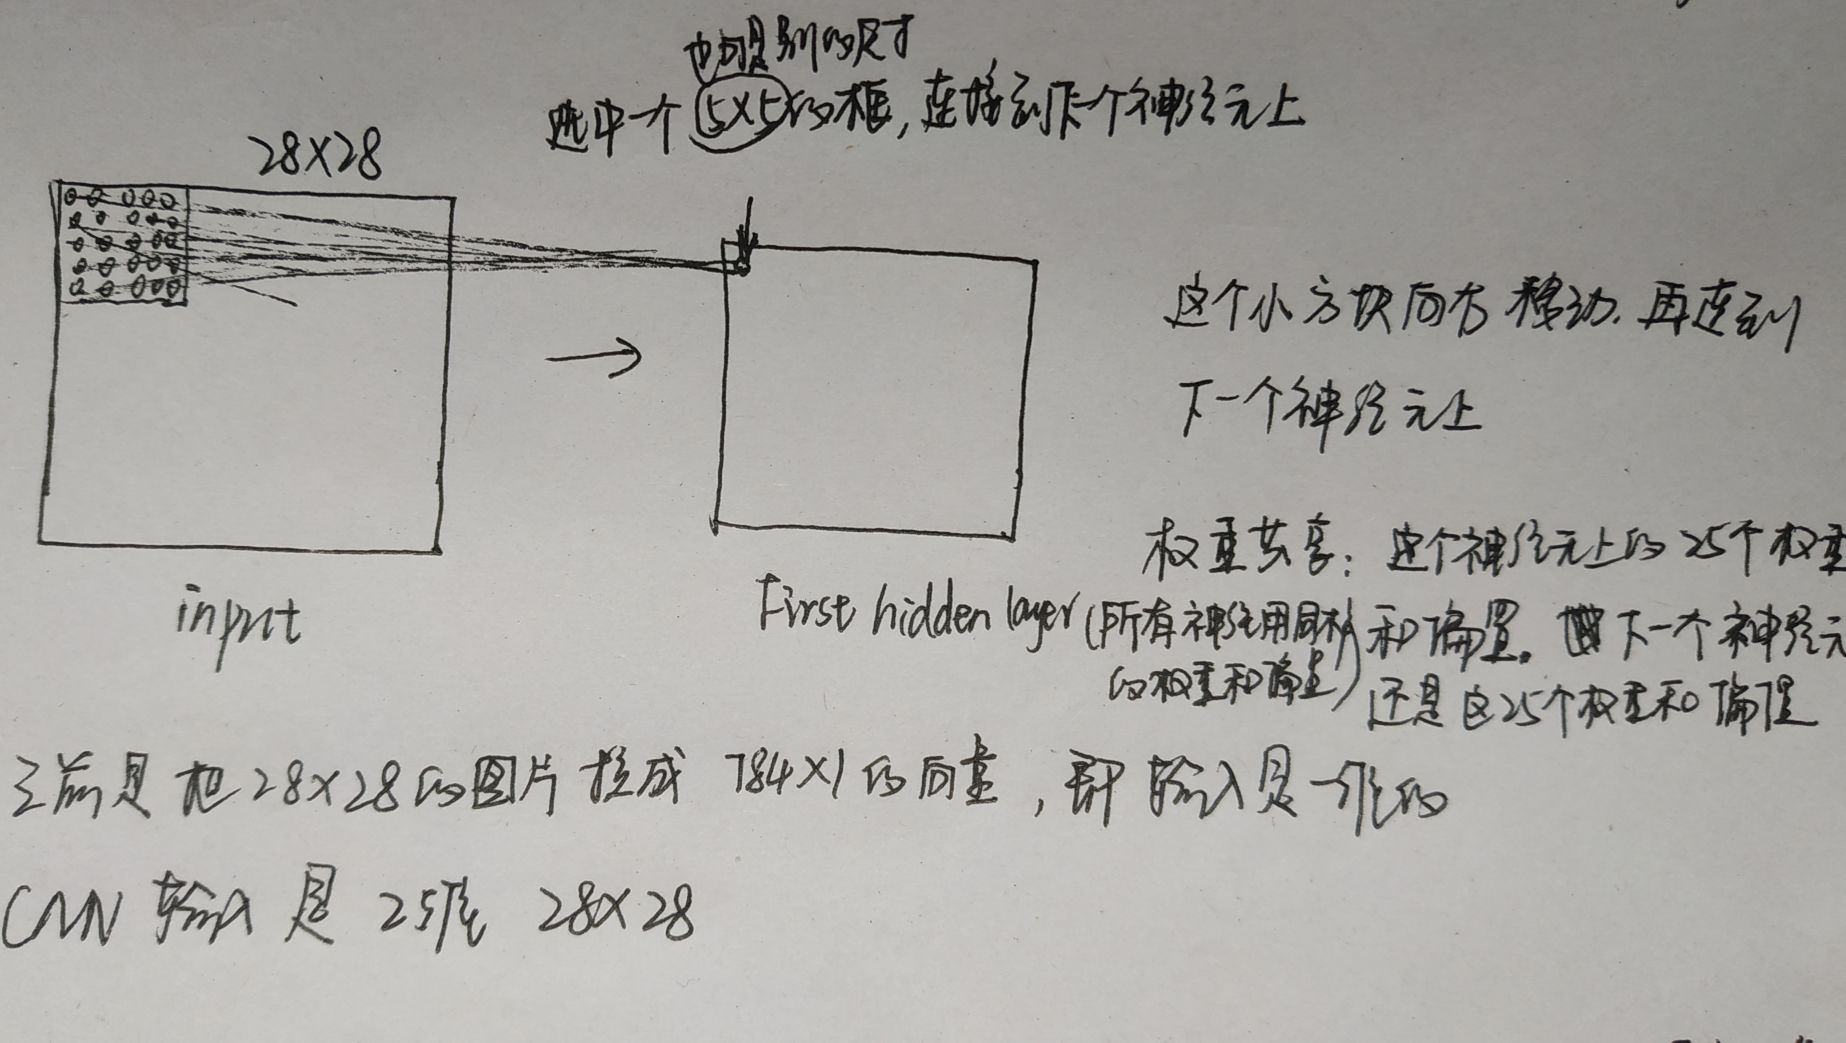 也可是别的尺寸
选中一个5×5的框，连接到下一个神经元上
28×28
这个小方块向右移动，再连到
下一个神经元上
input
First hidden layer
权重共享：这个神经元上的25个权重
和偏置。下一个神经元
还是这25个权重和偏置
(所有神经元用同样
的权重和偏置)
之前是把28×28的图片拉成784×1的向量，即输入是一维的
CNN输入是2维 28×28